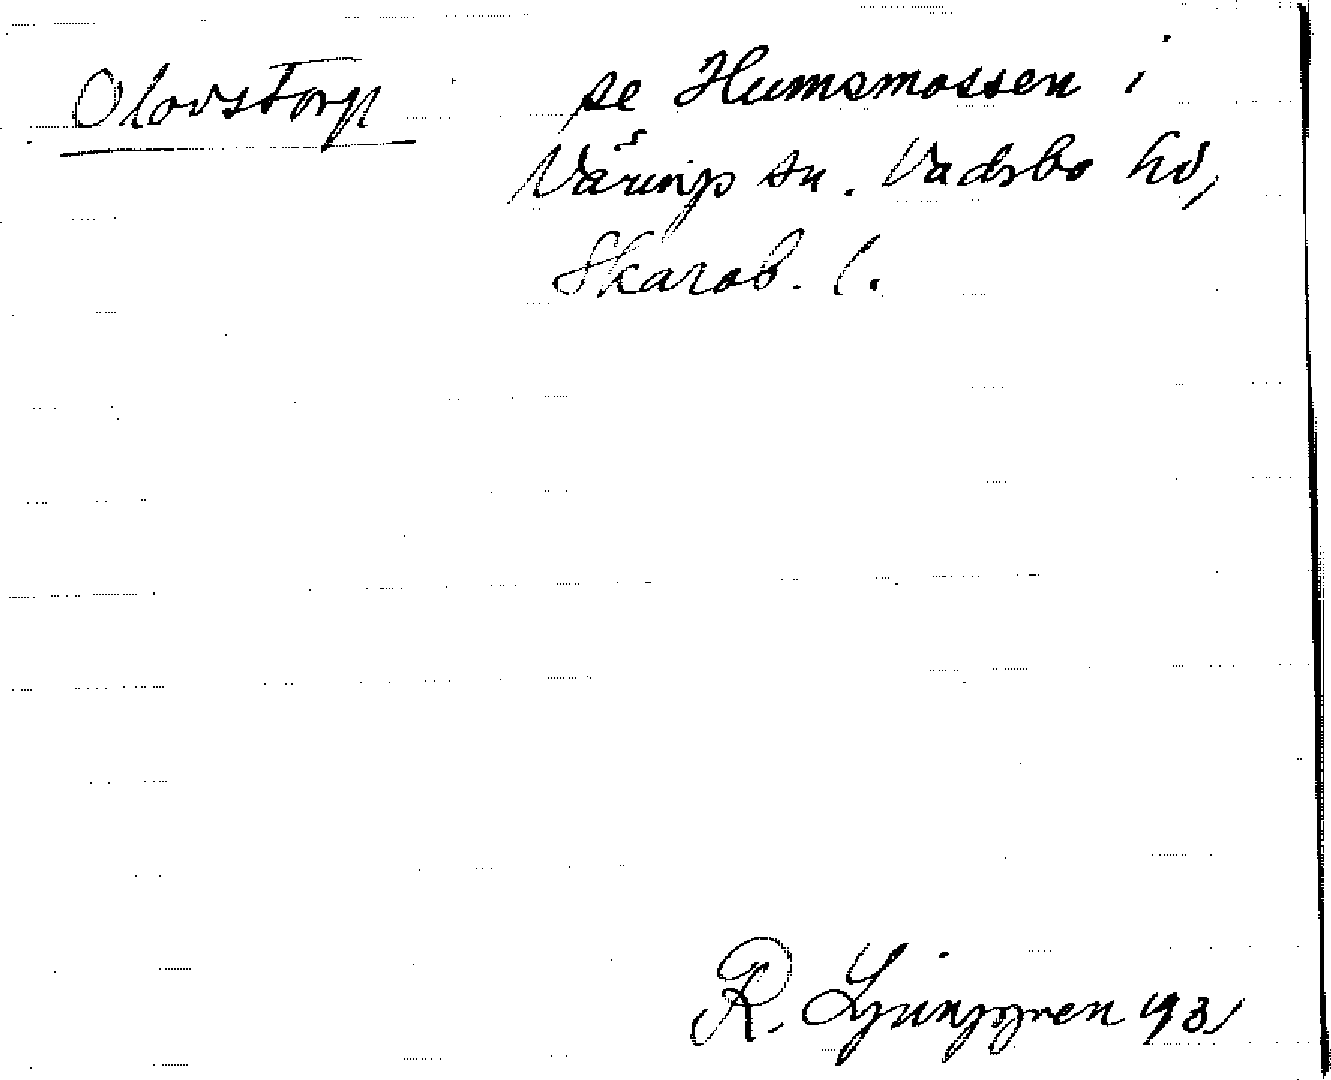 Olovstorp se Humsmossen i
Värings sn. Vadsbo hd,
Skarab. l.
R. Ljunggren 1931